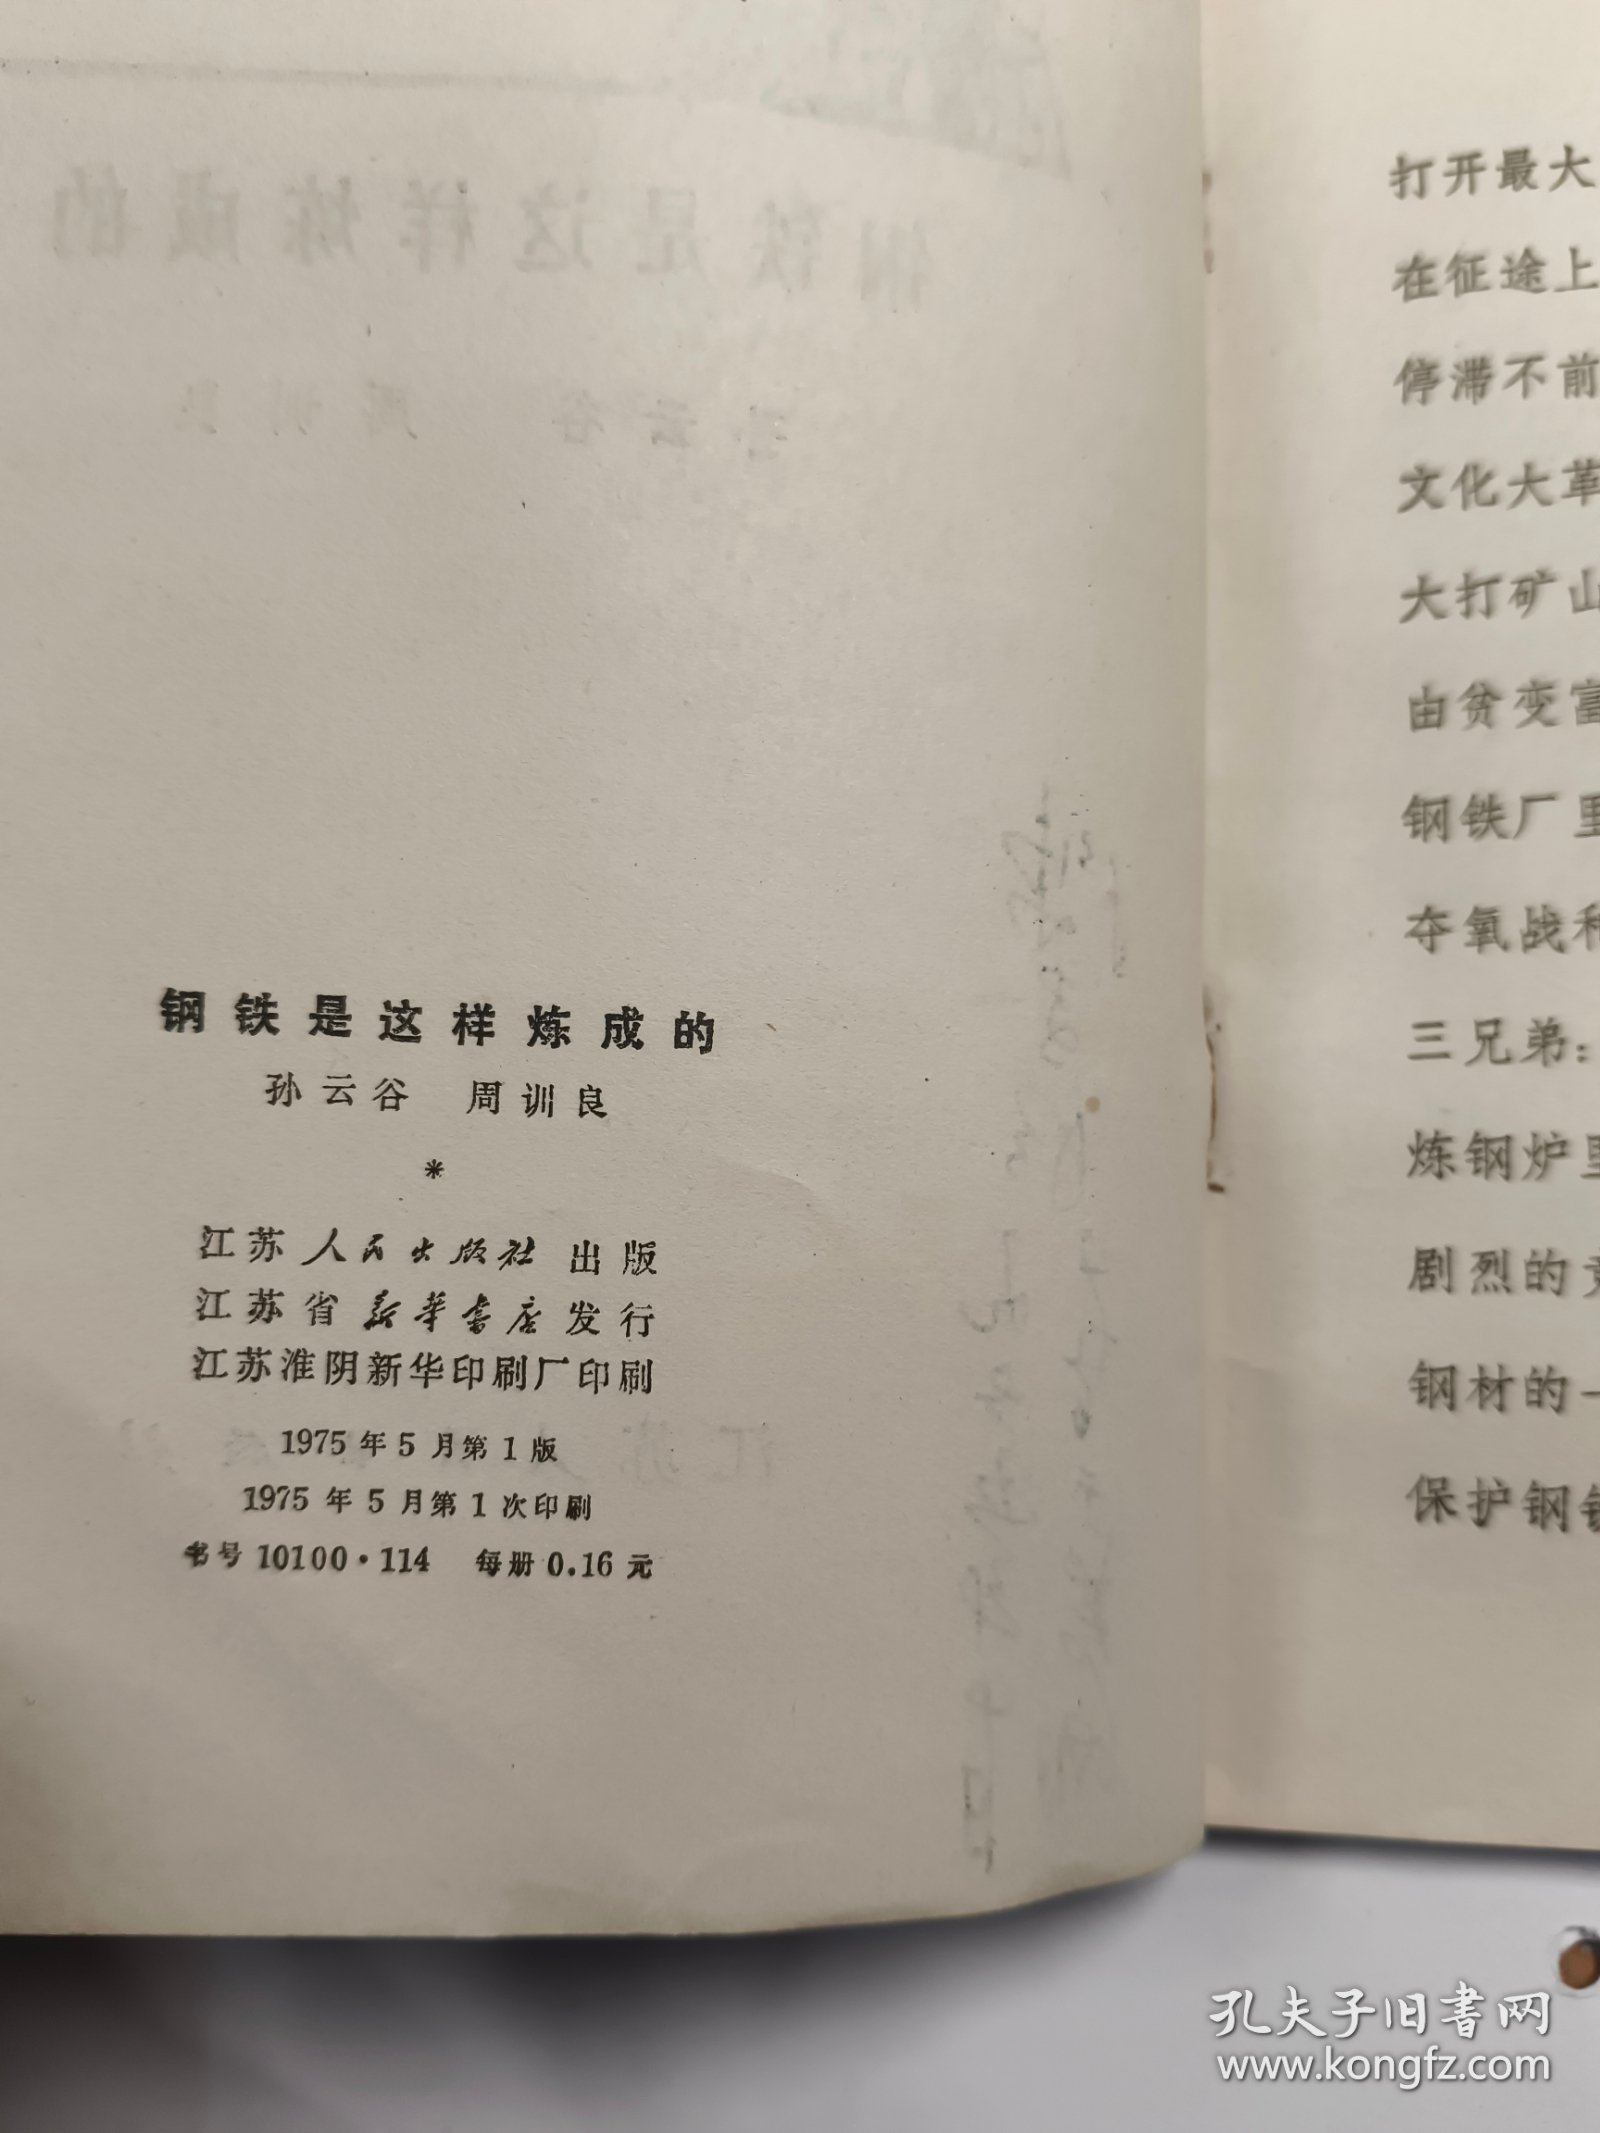 钢铁是这样炼成的
孙云谷 周训良
*
江苏人民出版社出版
江苏省新华书店发行
江苏淮阴新华印刷厂印刷
1975年5月第1版
1975年5月第1次印刷
书号10100·114 每册0.16元
打开最大
在征途上
停滞不前
文化大革
大打矿山
由贫变富
钢铁厂里
夺氧战和
三兄弟：
炼钢炉里
剧烈的
钢材的一
保护钢铁
孔夫子旧书网
www.kongfz.com